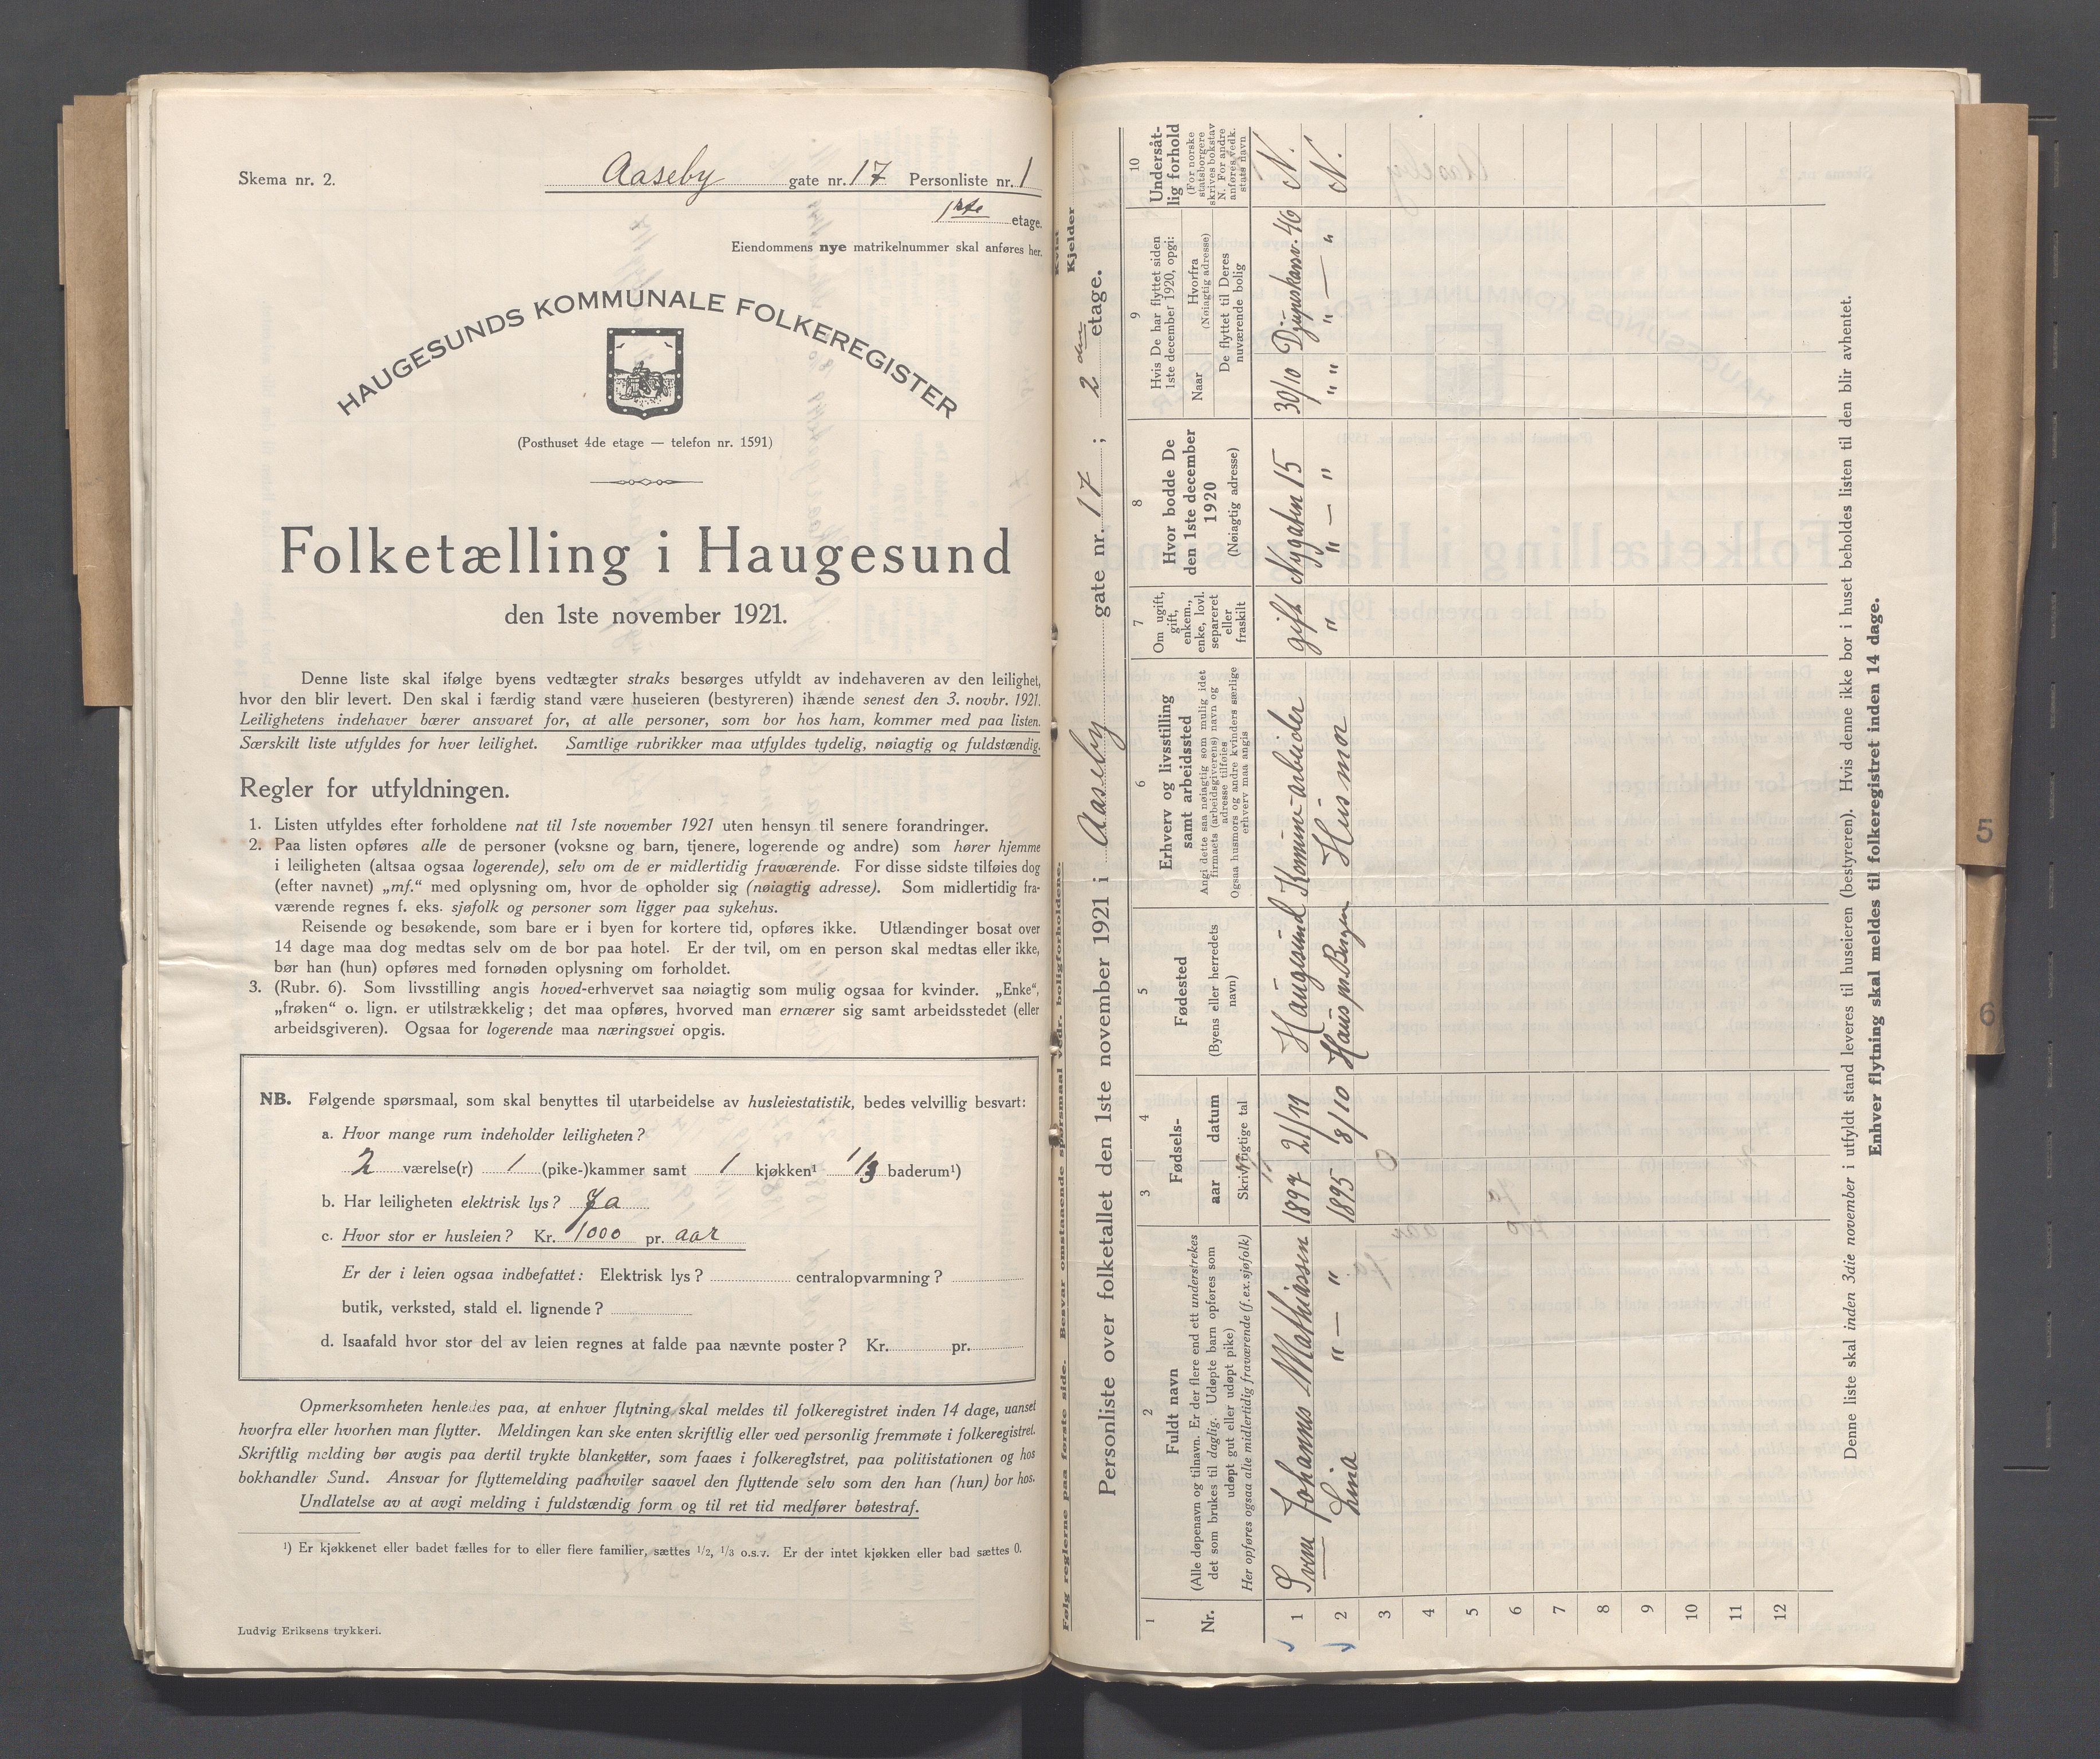 Skema nr. 2.
Aaseby gate nr. 17 Personliste nr. 1
1ste etage.
Eiendommens nye matrikelnummer skal anføres her.
HAUGESUNDS KOMMUNALE FOLKEREGISTER
(Posthuset 4de etage — telefon nr. 1591)
Folketælling i Haugesund
den 1ste november 1921.
Denne liste skal ifølge byens vedtægter straks besørges utfyldt av indehaveren av den leilighet,
hvor den blir levert. Den skal i færdig stand være huseieren (bestyreren) ihænde senest den 3. novbr. 1921.
Leilighetens indehaver bærer ansvaret for, at alle personer, som bor hos ham, kommer med paa listen.
Særskilt liste utfyldes for hver leilighet. Samtlige rubrikker maa utfyldes tydelig, nøiagtig og fuldstændig.
Regler for utfyldningen.
1. Listen utfyldes efter forholdene nat til 1ste november 1921 uten hensyn til senere forandringer.
2. Paa listen opføres alle de personer (voksne og barn, tjenere, logerende og andre) som hører hjemme
i leiligheten (altsaa ogsaa logerende), selv om de er midlertidig fraværende. For disse sidste tilføies dog
(efter navnet) „mf.“ med oplysning om, hvor de opholder sig (nøiagtig adresse). Som midlertidig fra-
værende regnes f. eks. sjøfolk og personer som ligger paa sykehus.
Reisende og besøkende, som bare er i byen for kortere tid, opføres ikke. Utlændinger bosat over
14 dage maa dog medtas selv om de bor paa hotel. Er der tvil, om en person skal medtas eller ikke,
bør han (hun) opføres med fornøden oplysning om forholdet.
3. (Rubr. 6). Som livsstilling angis hoved-erhvervet saa nøiagtig som mulig ogsaa for kvinder. „Enke“,
„frøken“ o. lign. er utilstrækkelig; det maa opføres, hvorved man ernærer sig samt arbeidsstedet (eller
arbeidsgiveren). Ogsaa for logerende maa næringsvei opgis.
NB. Følgende spørsmaal, som skal benyttes til utarbeidelse av husleiestatistik, bedes velvillig besvart:
a. Hvor mange rum indeholder leiligheten?
2 værelse(r) 1 (pike-)kammer samt 1 kjøkken¹ 1/3 baderum¹)
b. Har leiligheten elektrisk lys? Ja
c. Hvor stor er husleien? Kr. 1000 pr. aar
Er der i leien ogsaa indbefattet: Elektrisk lys? centralopvarmning?
butik, verksted, stald el. lignende?
d. Isaafald hvor stor del av leien regnes at falde paa nævnte poster? Kr. pr.
Opmerksomheten henledes paa, at enhver flytning skal meldes til folkeregistret inden 14 dage, uanset
hvorfra eller hvorhen man flytter. Meldingen kan ske enten skriftlig eller ved personlig fremmøte i folkeregistret.
Skriftlig melding bør avgis paa dertil trykte blanketter, som faaes i folkeregistret, paa politistationen og hos
bokhandler Sund. Ansvar for flyttemelding paahviler saavel den flyttende selv som den han (hun) bor hos.
Undlatelse av at avgi melding i fuldstændig form og til ret tid medfører bøtestraf.
¹) Er kjøkkenet eller badet fælles for to eller flere familier, sættes 1/2, 1/3 o.s.v. Er der intet kjøkken eller bad sættes 0.
Ludvig Eriksens trykkeri.
Følg reglerne paa første side. Besvar omstaaende spørsmaal vedr. boligforholdene.
Kvist
Kjelder
Personliste over folketallet den 1ste november 1921 i Aaseby gate nr. 17; 2den etage.
1 Nr.
2 Fuldt navn
(Alle døpenavn og tilnavn. Er der flere end ett understrekes
det som brukes til daglig. Udøpte barn opføres som
udøpt gut eller udøpt pike)
Her opføres ogsaa alle midlertidig fraværende (f.ex. sjøfolk)
3 4 Fødsels-
aar datum
Skriv nøigtige tal
5 Fødested
(Byens eller herredets
navn)
6 Erhverv og livsstilling
samt arbeidssted
Angi dette saa nøiagtig som mulig idet
firmaets (arbeidsgiverens) navn og
adresse tilføies
Ogsaa husmors og andre kvinders særlige
erhverv maa angis
7 Om ugift,
gift,
enkem.,
enke, lovl.
separeret
eller
fraskilt
8 Hvor bodde De
den 1ste december
1920
(Nøiagtig adresse)
9 Hvis De har flyttet siden
1ste december 1920, opgi:
Naar
Hvorfra
(Nøiagtig adresse)
De flyttet til Deres
nuværende bolig
10 Undersåt-
lig forhold
(For norske
statsborgere
skrives bokstav
N. For andre
anføres vedk.
stats navn
1 Sven Johannes Mathiassen 1897 21/11 Haugesund Komune-arbeider gift Nygaten 15 30/10 Djupaskarv. 46 N.
2 Lina " — " 1895 8/10 Haus pr. Bergen Husmor " " — " " " " — " N.
3
4
5
6
7
8
9
10
11
12
Denne liste skal inden 3die november i utfyldt stand leveres til huseieren (bestyreren). Hvis denne ikke bor i huset beholdes listen til den blir avhentet.
Enhver flytning skal meldes til folkeregistret inden 14 dage.
5
6